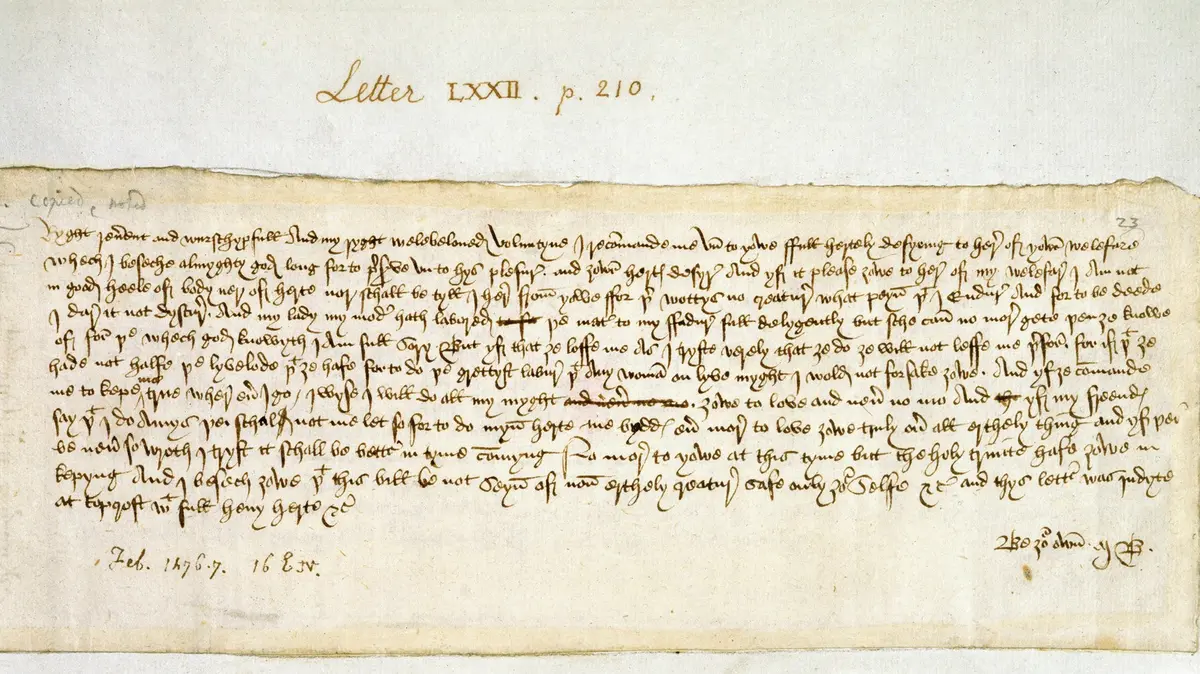 Letter LXXII. p. 210.
copied, noted
23
Ryght reverent and wurschypfull And my ryght welebeloved voluntyne I recomande me vn to yowe ffull hertely desyring to her of yowr welefare
whech I beseche almyghty god long for to preserve vn to hys plesur. and zowr herts desyr And yf it please zowe to her of my welefar I Am not
in good heele of body ner of herte nor schall be tyll I her from yowe ffor þer wottys no creatur what peyn þt I Endur And for to be deede
I dar it not dyscur. And my lady my moder hath labored to þe mater to my ffadur full delygently but sche can no mor gete þen ze knowe
of for þe whech god knowyth I Am full sory But yf that ze loffe me As I tryste verely that ze do ze will not leffe me þerfor. for if þt ze
hade not halfe þe lyvelode þt ze hafe for to do þe grettyst labur þt Any woman on lyve myght I wold not forsake zowe. And yf ze comande
me to kepe me true wher ever I go. I wyse I will do all my myght zowe to love and never no mo And yf my freends
say þt I do Amys þei schal not me let so for to do myn herte me bydds ever mor to love zowe truly over all erthely thing and yf þei
be never so wroth I tryst it schall be better in tyme comyng No mor to yowe at this tyme but the holy trinite hafe zowe in
kepyng And I besech zowe þt this bill be not seyn of non erthely creatur safe only zor selfe &c and thys letter was indyte
at topcroft wt full hevy herte &c
Be zor own. M B.
Feb. 1476.7. 16 E.IV.